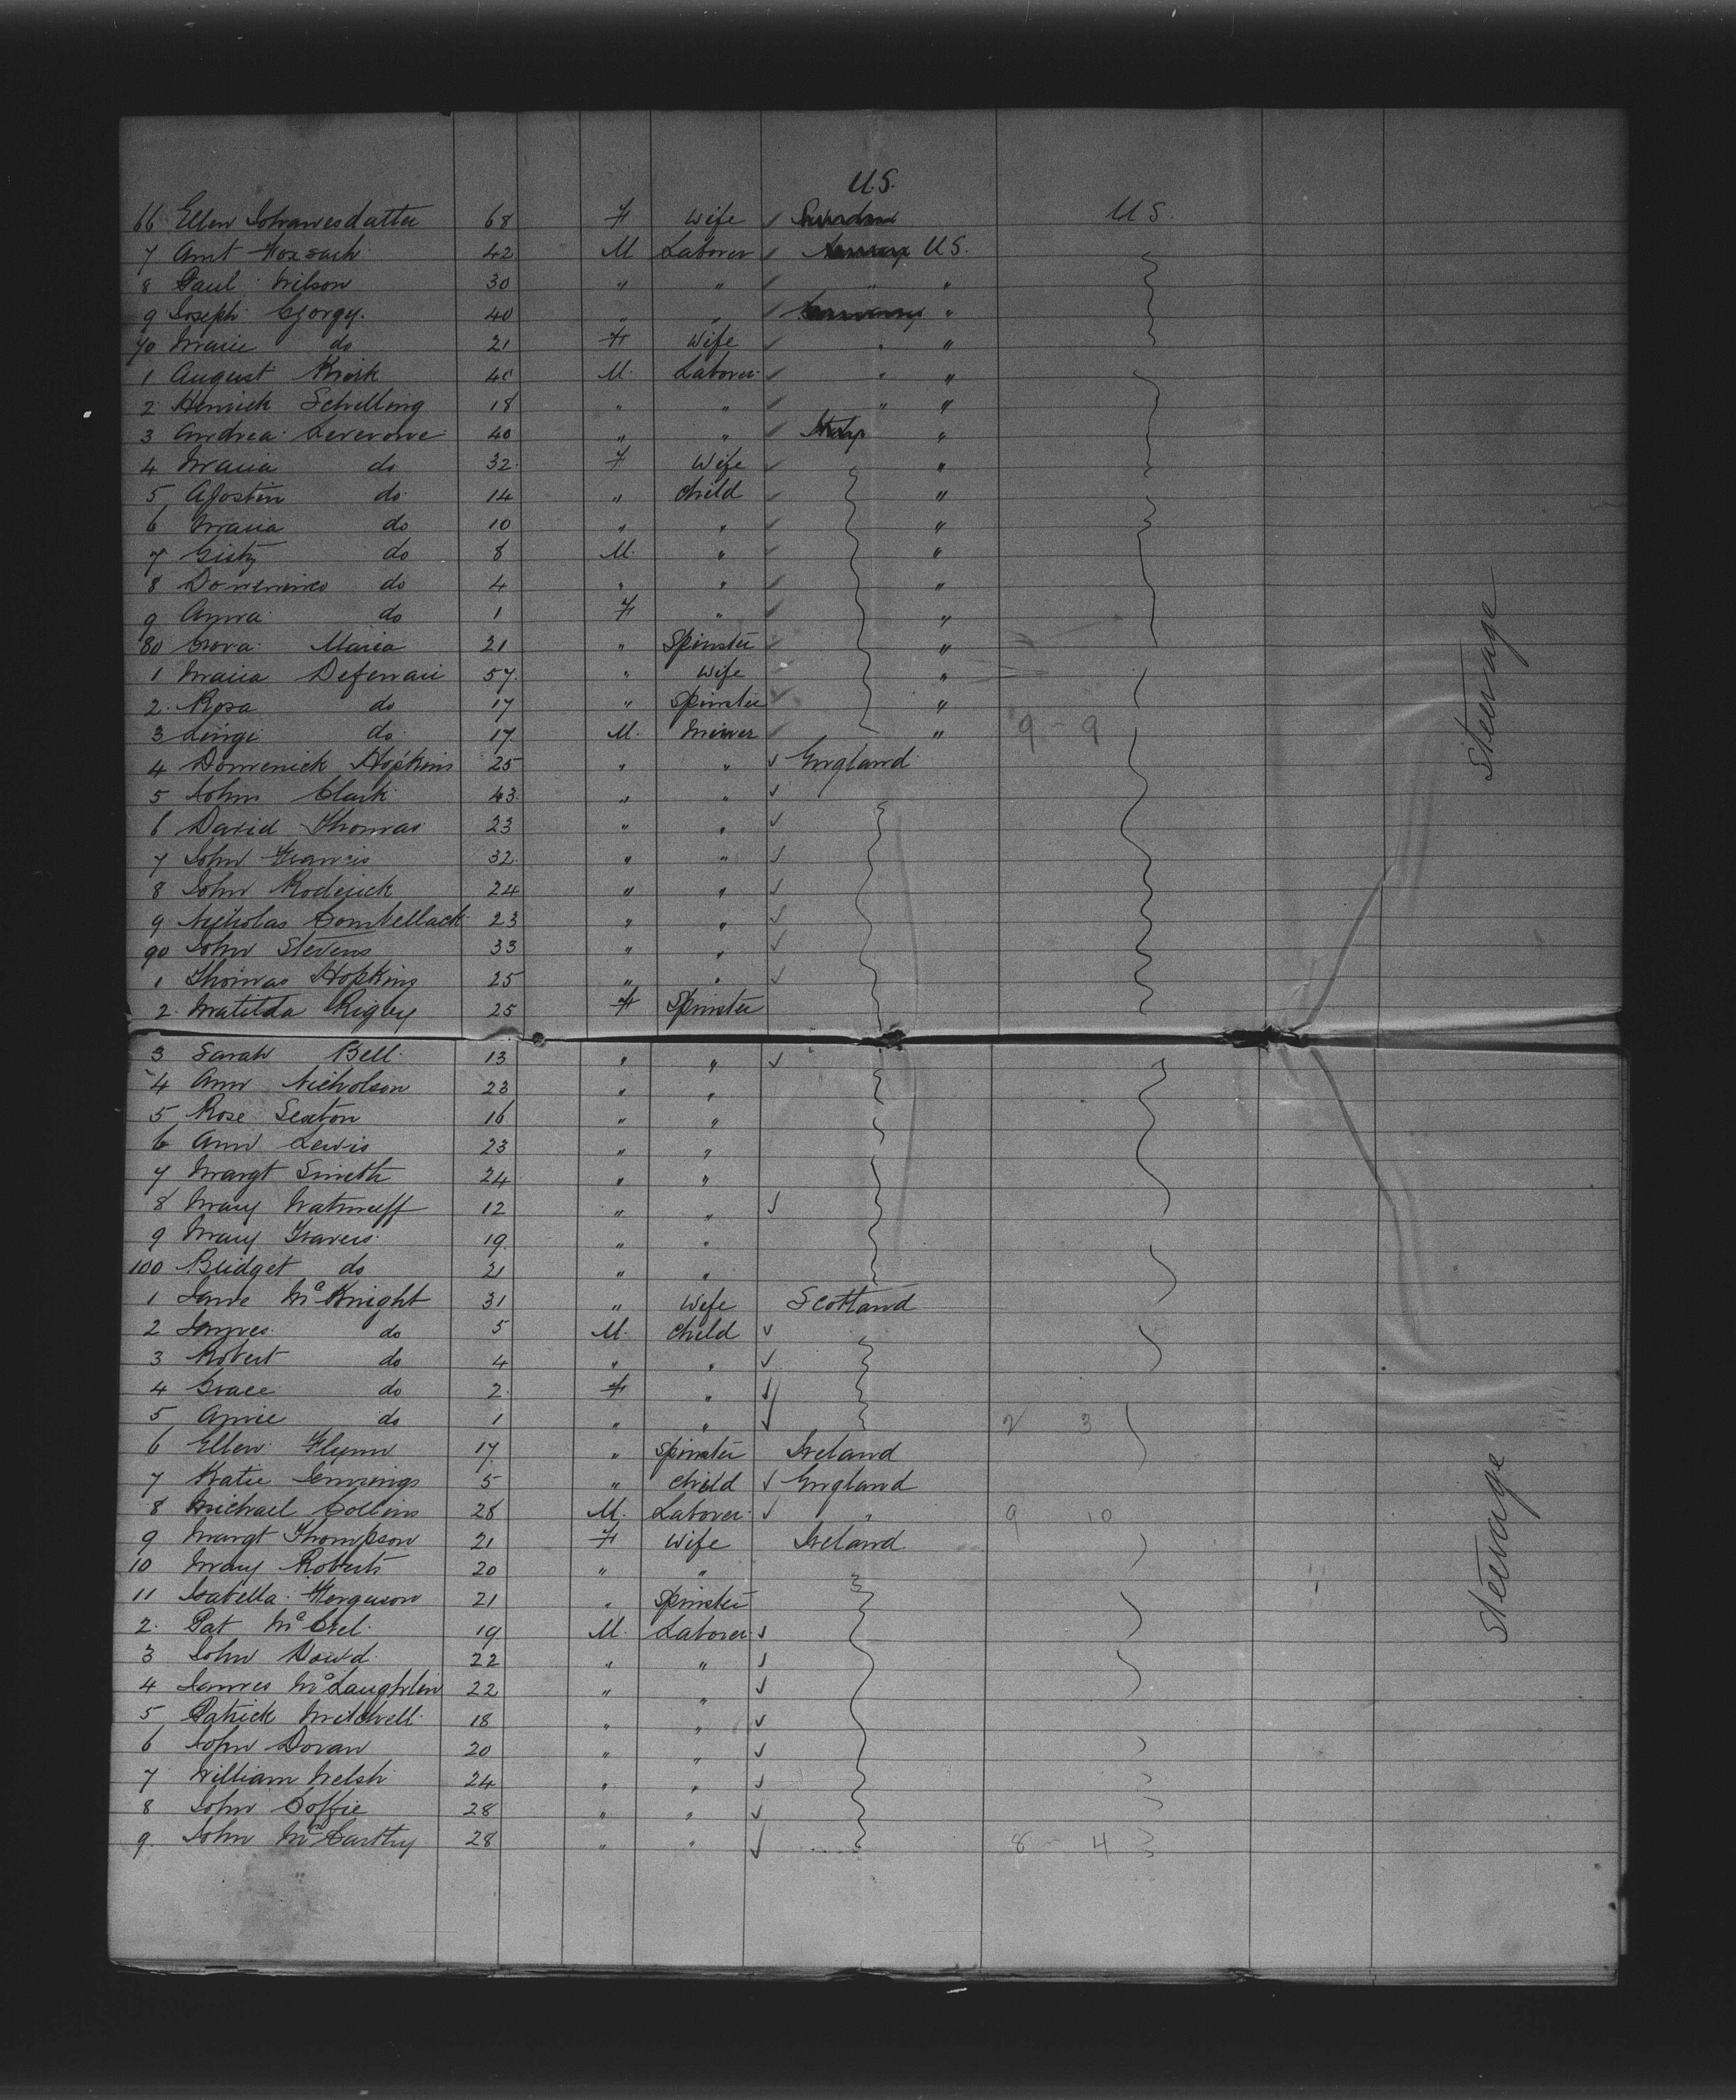 U.S.
66 Ellen Johannesdatter 68 F Wife ✓ U.S.
7 Amt Foxsach 42 M Laborer ✓ U.S.
8 Paul Nilson 30 " " ✓ " "
9 Joseph Gjorgy. 40 " " ✓ Germany "
70 Marie do 21 F Wife ✓ " "
1 August Krisk 40 M. Laborer ✓ " "
2 Henrick Schelling 18 " " ✓ " "
3 Andrea Leverone 40 " " ✓ Italy "
4 Maria do 32. F Wife ✓ "
5 Agostin do 14 " Child ✓ "
6 Maria do 10 " " ✓ "
7 do 8 M. " ✓ "
8 Domenico do 4 " " ✓ "
9 Anna do 1 F " ✓ "
80 Cova Maria 21 " Spinster ✓ "
1 Maria Deferrari 57. " Wife "
2. Rosa do 17 " Spinster ✓ "
3 Luigi do 17. M. Miner ✓ " 9 - 9
4 Domenick Hopkins 25 " " ✓ England
5 John Clark 43. " " ✓
6 David Thomas 23 " " ✓
7 John Francis 32. " " ✓
8 John Roderick 24 " " ✓
9 Nicholas Combellack 23 " " ✓
90 John Stevens 33 " " ✓
1 Thomas Hopkins 25 " " ✓
2. Matilda Rigby 25 F Spinster
Steerage
3 Sarah Bell 13 " " ✓
4 Ann Nicholson 23 " "
5 Rose Sexton 16 " "
6 Ann Lewis 23 " "
7 Margt Smith 24 " "
8 Mary 12 " " ✓
9 Mary Travers 19. " "
100 Bridget do 21 " "
1 Jane McKnight 31 " Wife Scotland
2 James do 5 M. Child ✓
3 Robert do 4 " " ✓
4 Grace do 2. F " ✓
5 Annie do 1 " " ✓ 2 3
6 Ellen Flynn 17. " Spinster Ireland
7 Katie Jennings 5 " Child ✓ England
8 Michael Collins 28 M. Laborer ✓ " 9 10
9 Margt Thompson 21 F Wife Ireland
10 Mary Roberts 20 " "
11 Isabella Ferguson 21 " Spinster
2. Pat 19 M. Laborer ✓
3 John Dowd 22 " " ✓
4 James McLaughlin 22 " " ✓
5 Patrick Mitchell 18 " " ✓
6 John Doran 20 " " ✓
7 William Welsh 24 " " ✓
8 John Coffie 28 " " ✓
9. John McCarthy 28 " " ✓ 8 - 4
Steerage